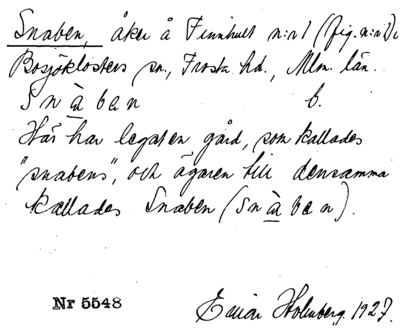 Snaben, åker å Finnhult n:r 1 (fig. n:r 1) i
Bosjöklosters sn., Frosta hd., Mlm. län.
S n à b a n b.
Här har legat en gård, som kallades
"snabens", och ägaren till densamma
kallades Snaben (s n à b a n).
Nr 5548 Einar Holmberg. 1927.